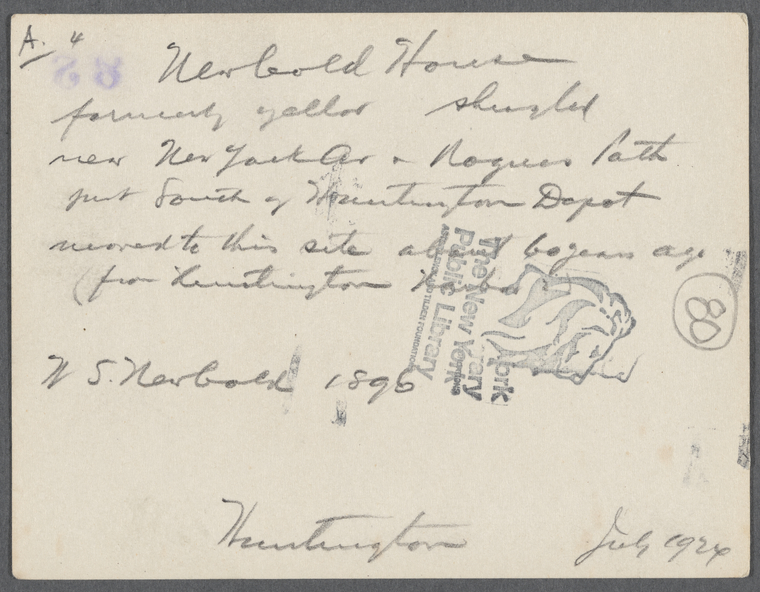 A. 4
82
Newbold House
formerly yellow shingled
near New York Av + Rogues Path
just South of Huntington Depot
moved to this site about 60 years ago
(from Huntington
80
The New York
Public Library
ASTOR, LENOX AND TILDEN FOUNDATIONS
W S. Newbold 1896
Huntington
July 1924